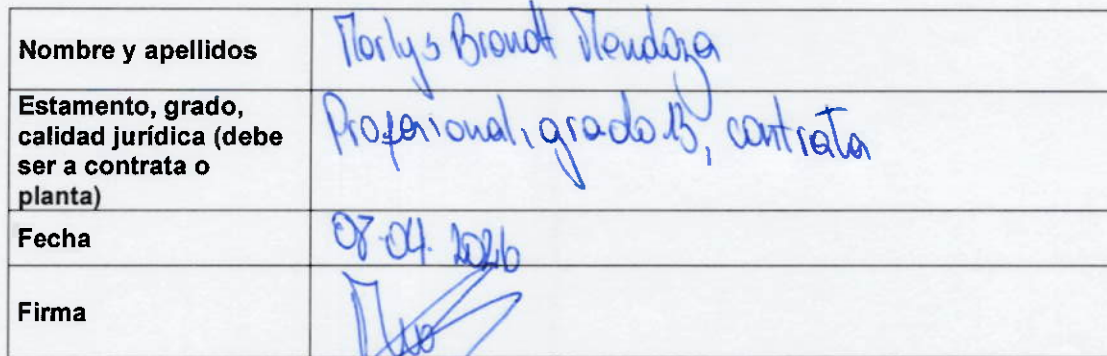 Nombre y apellidos
Marlys Brandt Mendoza
Estamento, grado,
calidad jurídica (debe
ser a contrata o
planta)
Profesional, grado 13, contrata
Fecha
08-04-2026
Firma